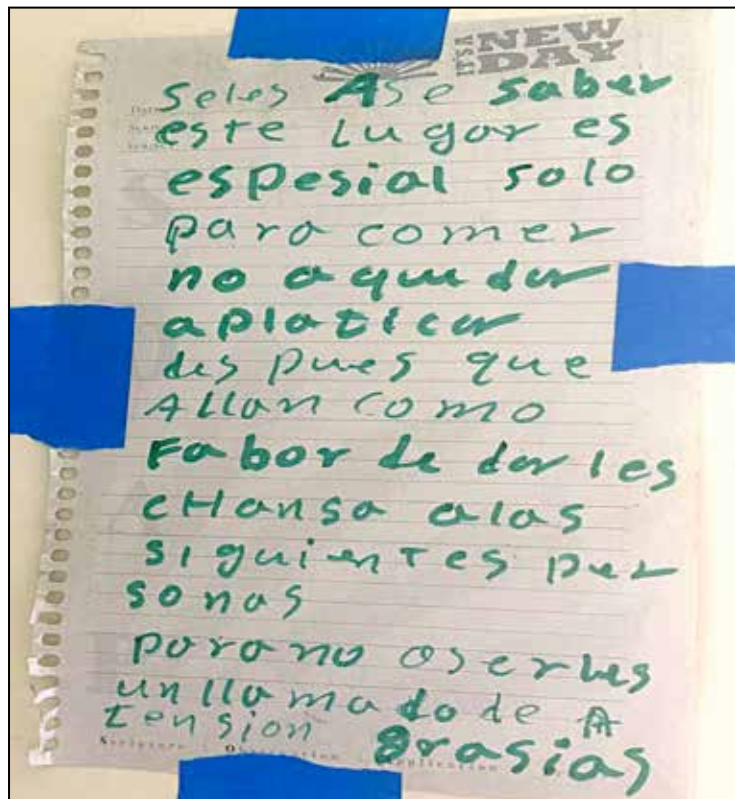 IT'S A NEW DAY
seles Ase saber
este Lugar es
espesial solo
para comer
no aquedar
aplaticar
des pues que
Allan como
Fabor de dar les
cHansa alas
siguientes per
sonas
para no aserles
un llamado de A
tension grasias
Scripture Observation Application